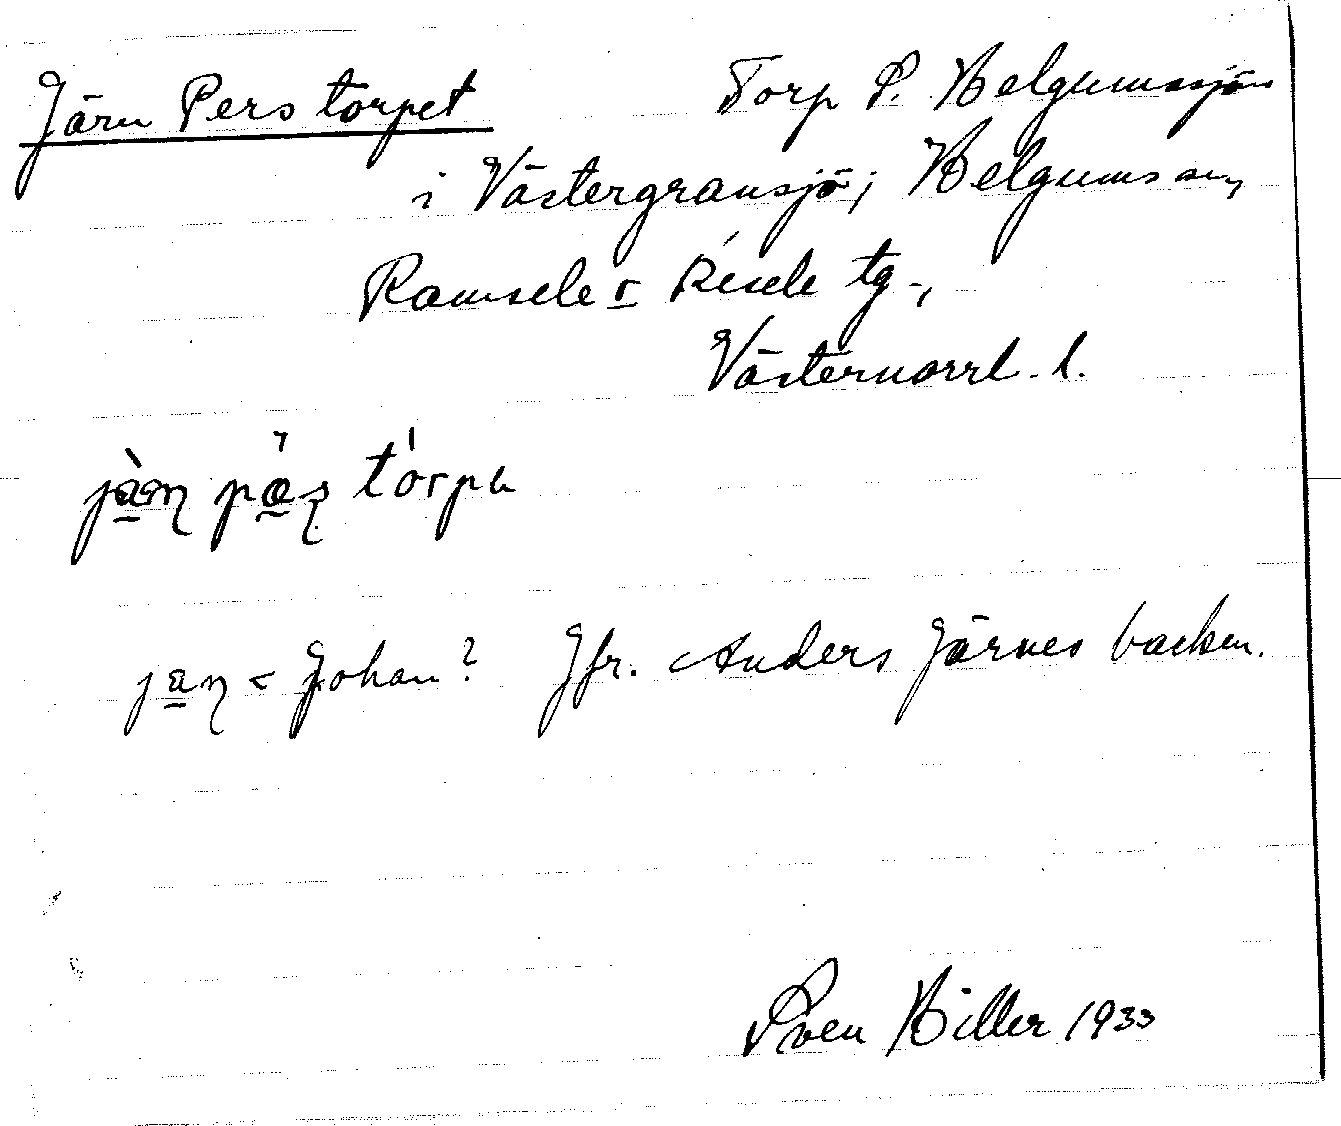 Järn Pers torpet
Torp S. Helgumssjön
i Västergransjö; Helgums sn,
Ramsele o Resele tg -,
Västernorrl. l.
torpa
< Johan? Jfr. Anders Järnes backen.
Sven Hiller 1933